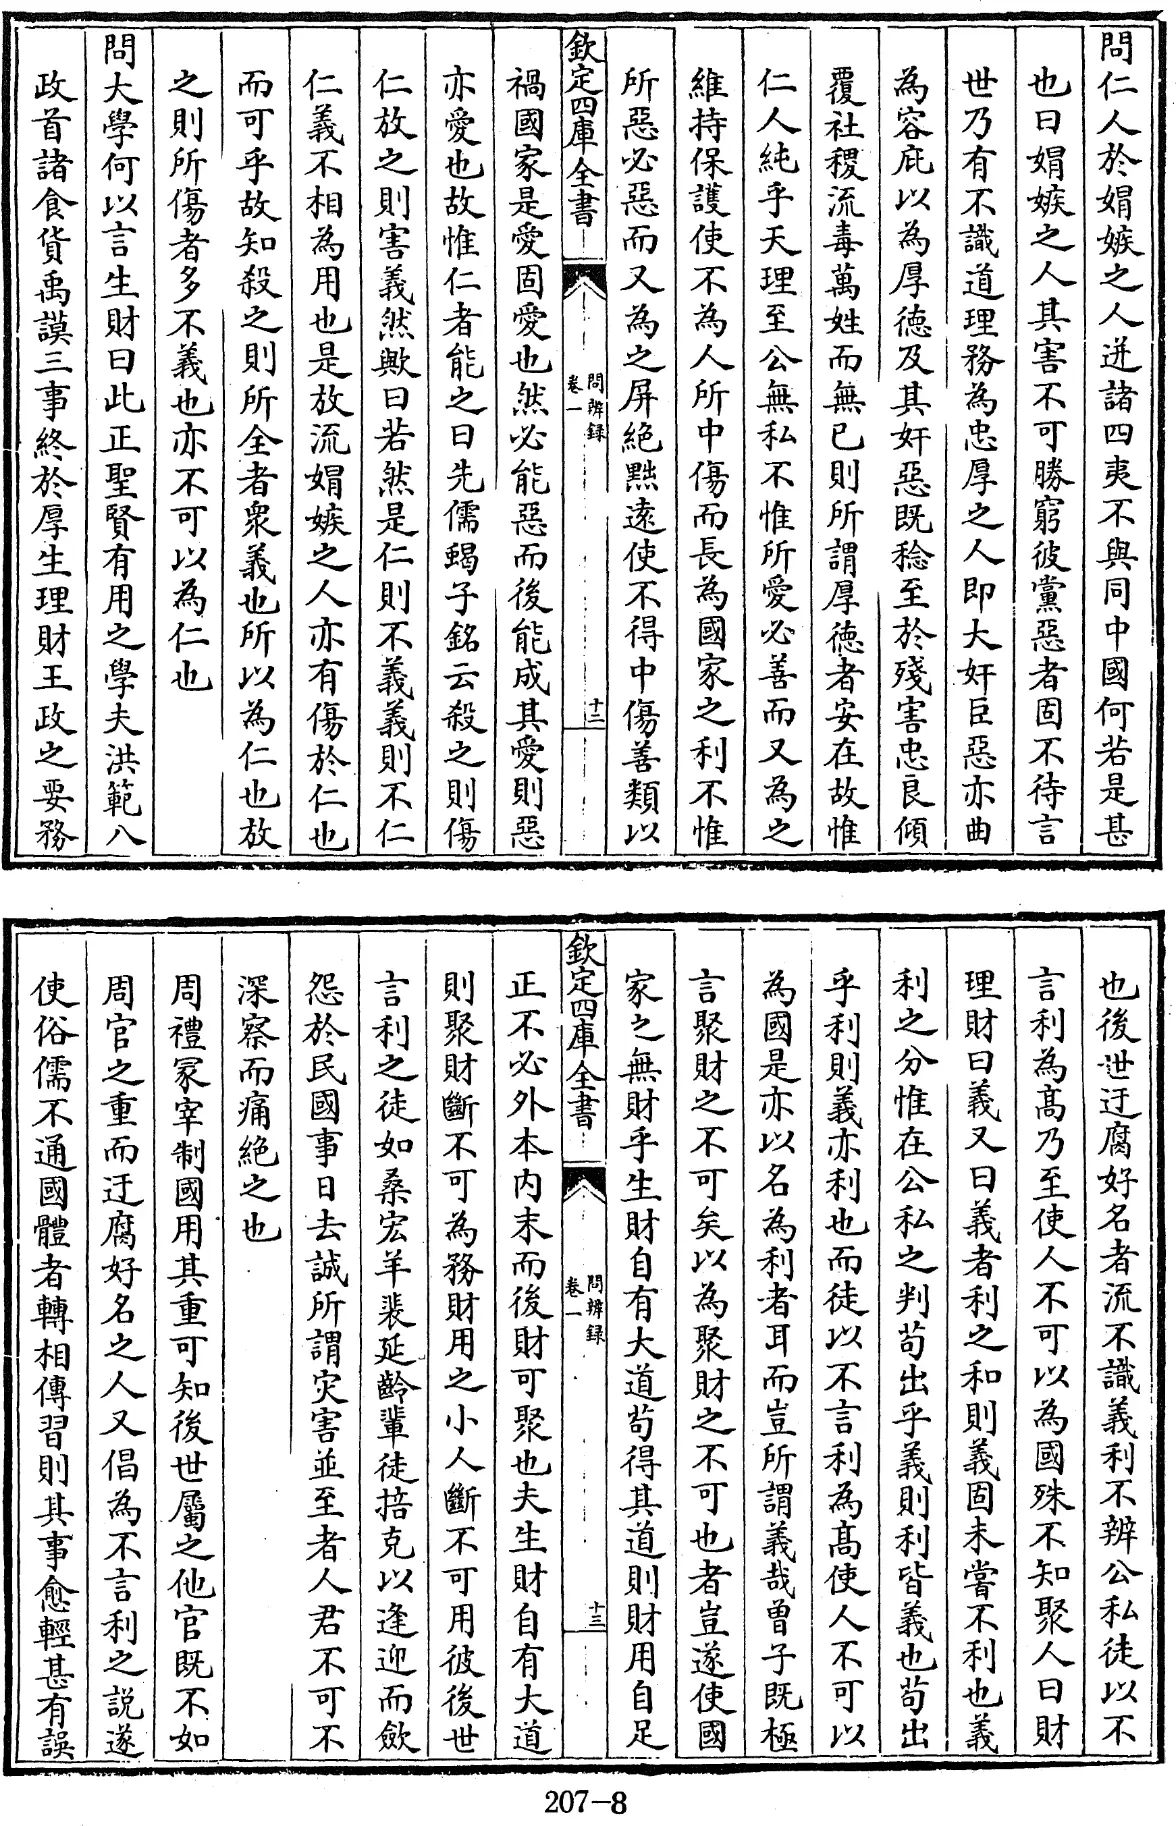 問仁人於娼嫉之人迸諸四夷不與同中國何若是甚
也曰娼嫉之人其害不可勝窮彼黨惡者固不待言
世乃有不識道理務為忠厚之人即大奸臣惡亦曲
為容庇以為厚德及其奸惡既稔至於殘害忠良傾
覆社稷流毒萬姓而無已則所謂厚德者安在故惟
仁人純乎天理至公無私不惟所愛必善而又為之
維持保護使不為人所中傷而長為國家之利不惟
所惡必惡而又為之屏絶黜遠使不得中傷善類以
欽定四庫全書
問辨録
卷一
十二
禍國家是愛固愛也然必能惡而後能成其愛則惡
亦愛也故惟仁者能之曰先儒蝎子銘云殺之則傷
仁放之則害義然歟曰若然是仁則不義義則不仁
仁義不相為用也是放流娼嫉之人亦有傷於仁也
而可乎故知殺之則所全者衆義也所以為仁也放
之則所傷者多不義也亦不可以為仁也
問大學何以言生財曰此正聖賢有用之學夫洪範八
政首諸食貨禹謨三事終於厚生理財王政之要務
也後世迂腐好名者流不識義利不辨公私徒以不
言利為髙乃至使人不可以為國殊不知聚人曰財
理財曰義又曰義者利之和則義固未嘗不利也義
利之分惟在公私之判苟出乎義則利皆義也苟出
乎利則義亦利也而徒以不言利為髙使人不可以
為國是亦以名為利者耳而豈所謂義哉曾子既極
言聚財之不可矣以為聚財之不可也者豈遂使國
家之無財乎生財自有大道苟得其道則財用自足
欽定四庫全書
問辨録
卷一
十三
正不必外本内末而後財可聚也夫生財自有大道
則聚財斷不可為務財用之小人斷不可用彼後世
言利之徒如桑宏羊裴延齡輩徒掊克以逢迎而歛
怨於民國事日去誠所謂灾害並至者人君不可不
深察而痛絶之也
周禮冢宰制國用其重可知後世屬之他官既不如
周官之重而迂腐好名之人又倡為不言利之説遂
使俗儒不通國體者轉相傳習則其事愈輕甚有誤
207-8